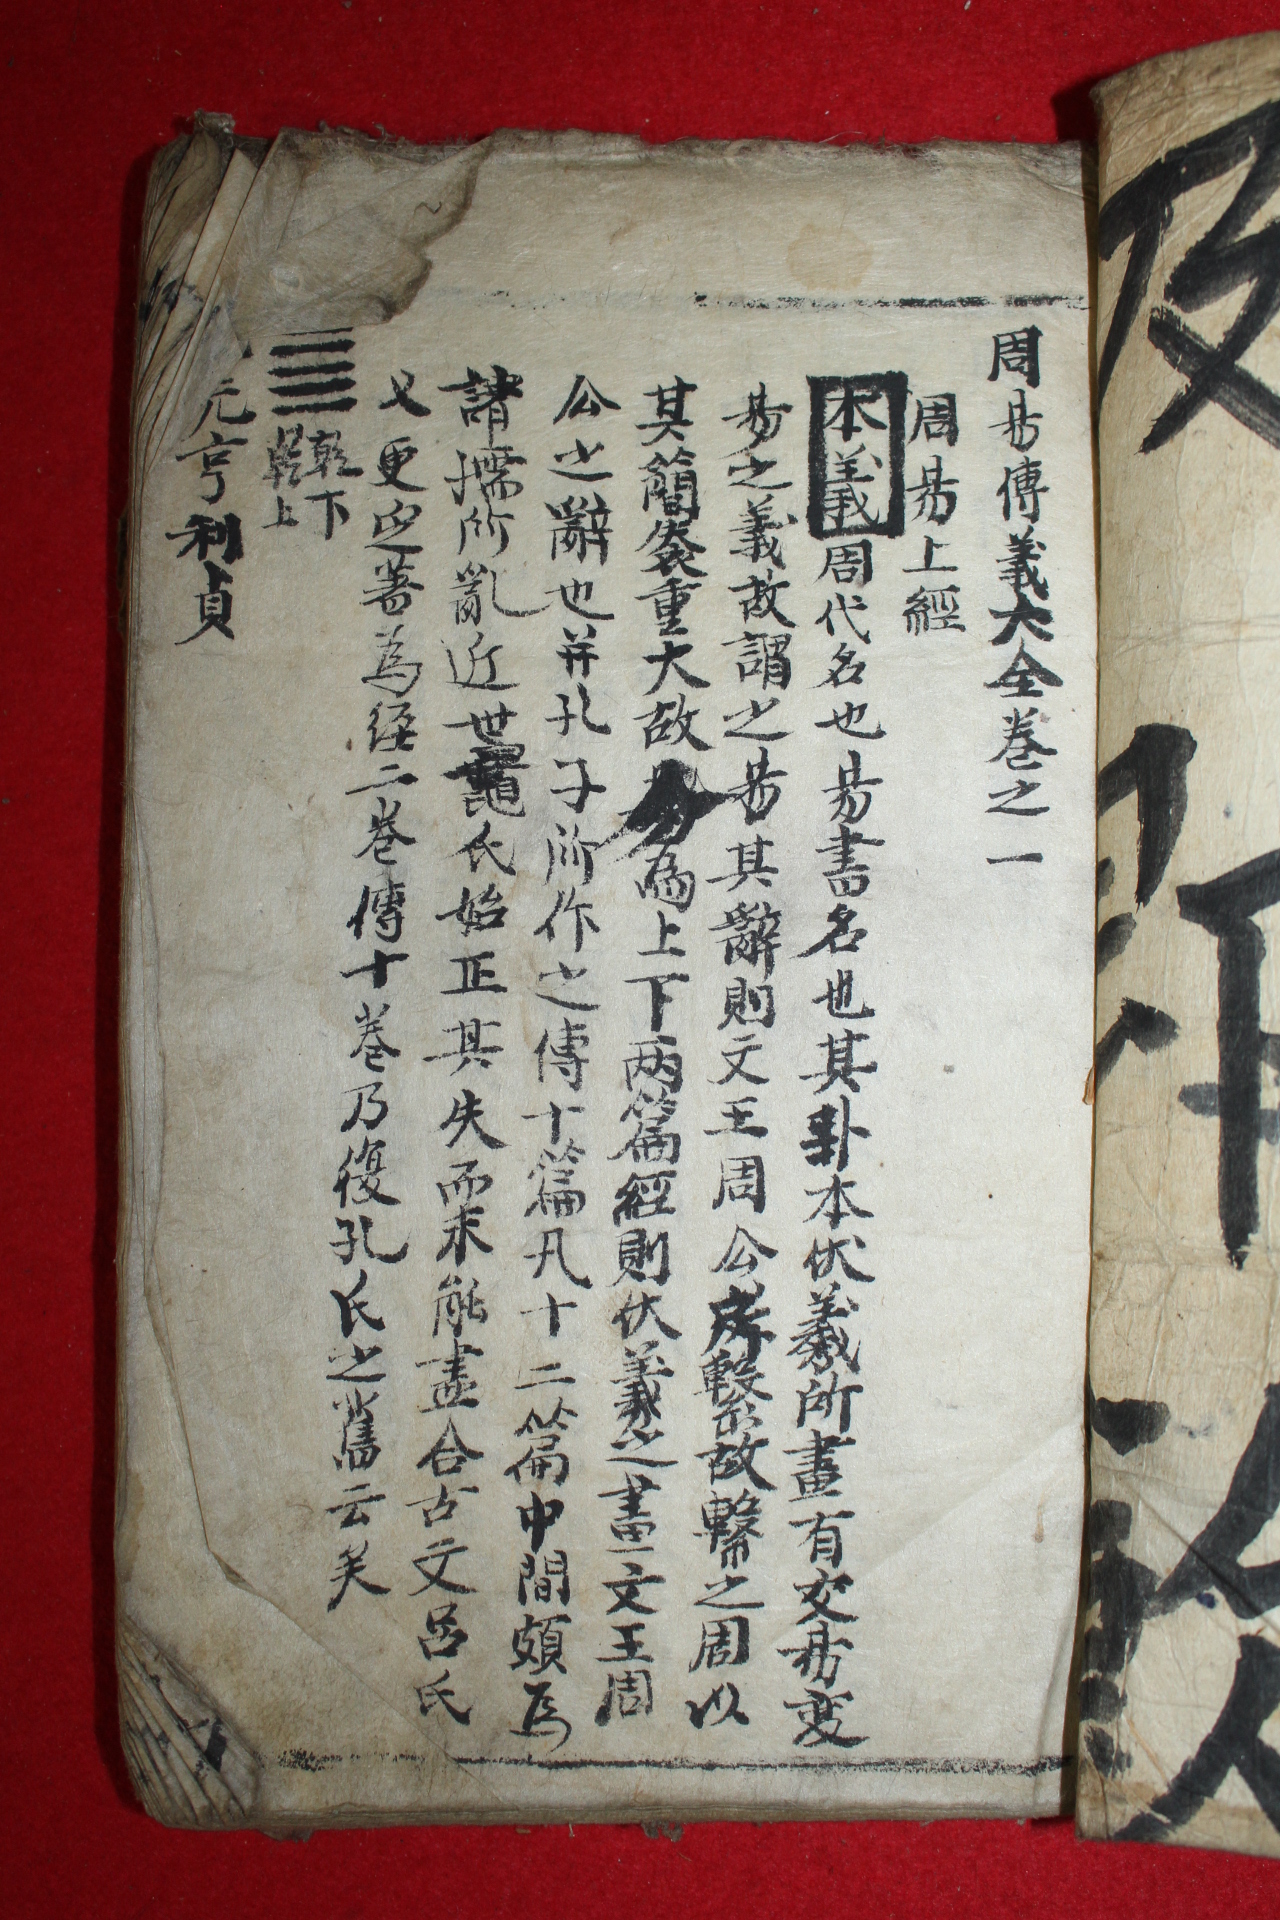 周易傳義大全卷之一
周易上經
本義周代名也易書名也其卦本伏羲所畫有交易變
易之義故謂之易其辭則文王周公所繫故繫之周以
其簡袠重大故分為上下两篇經則伏羲之畫文王周
公之辭也并孔子所作之傳十篇凡十二篇中間頗為
諸儒所亂近世鼂氏始正其失而未能盡合古文呂氏
又更定著為經二卷傳十卷乃復孔氏之舊云矣
乾下
乾上
元亨利貞